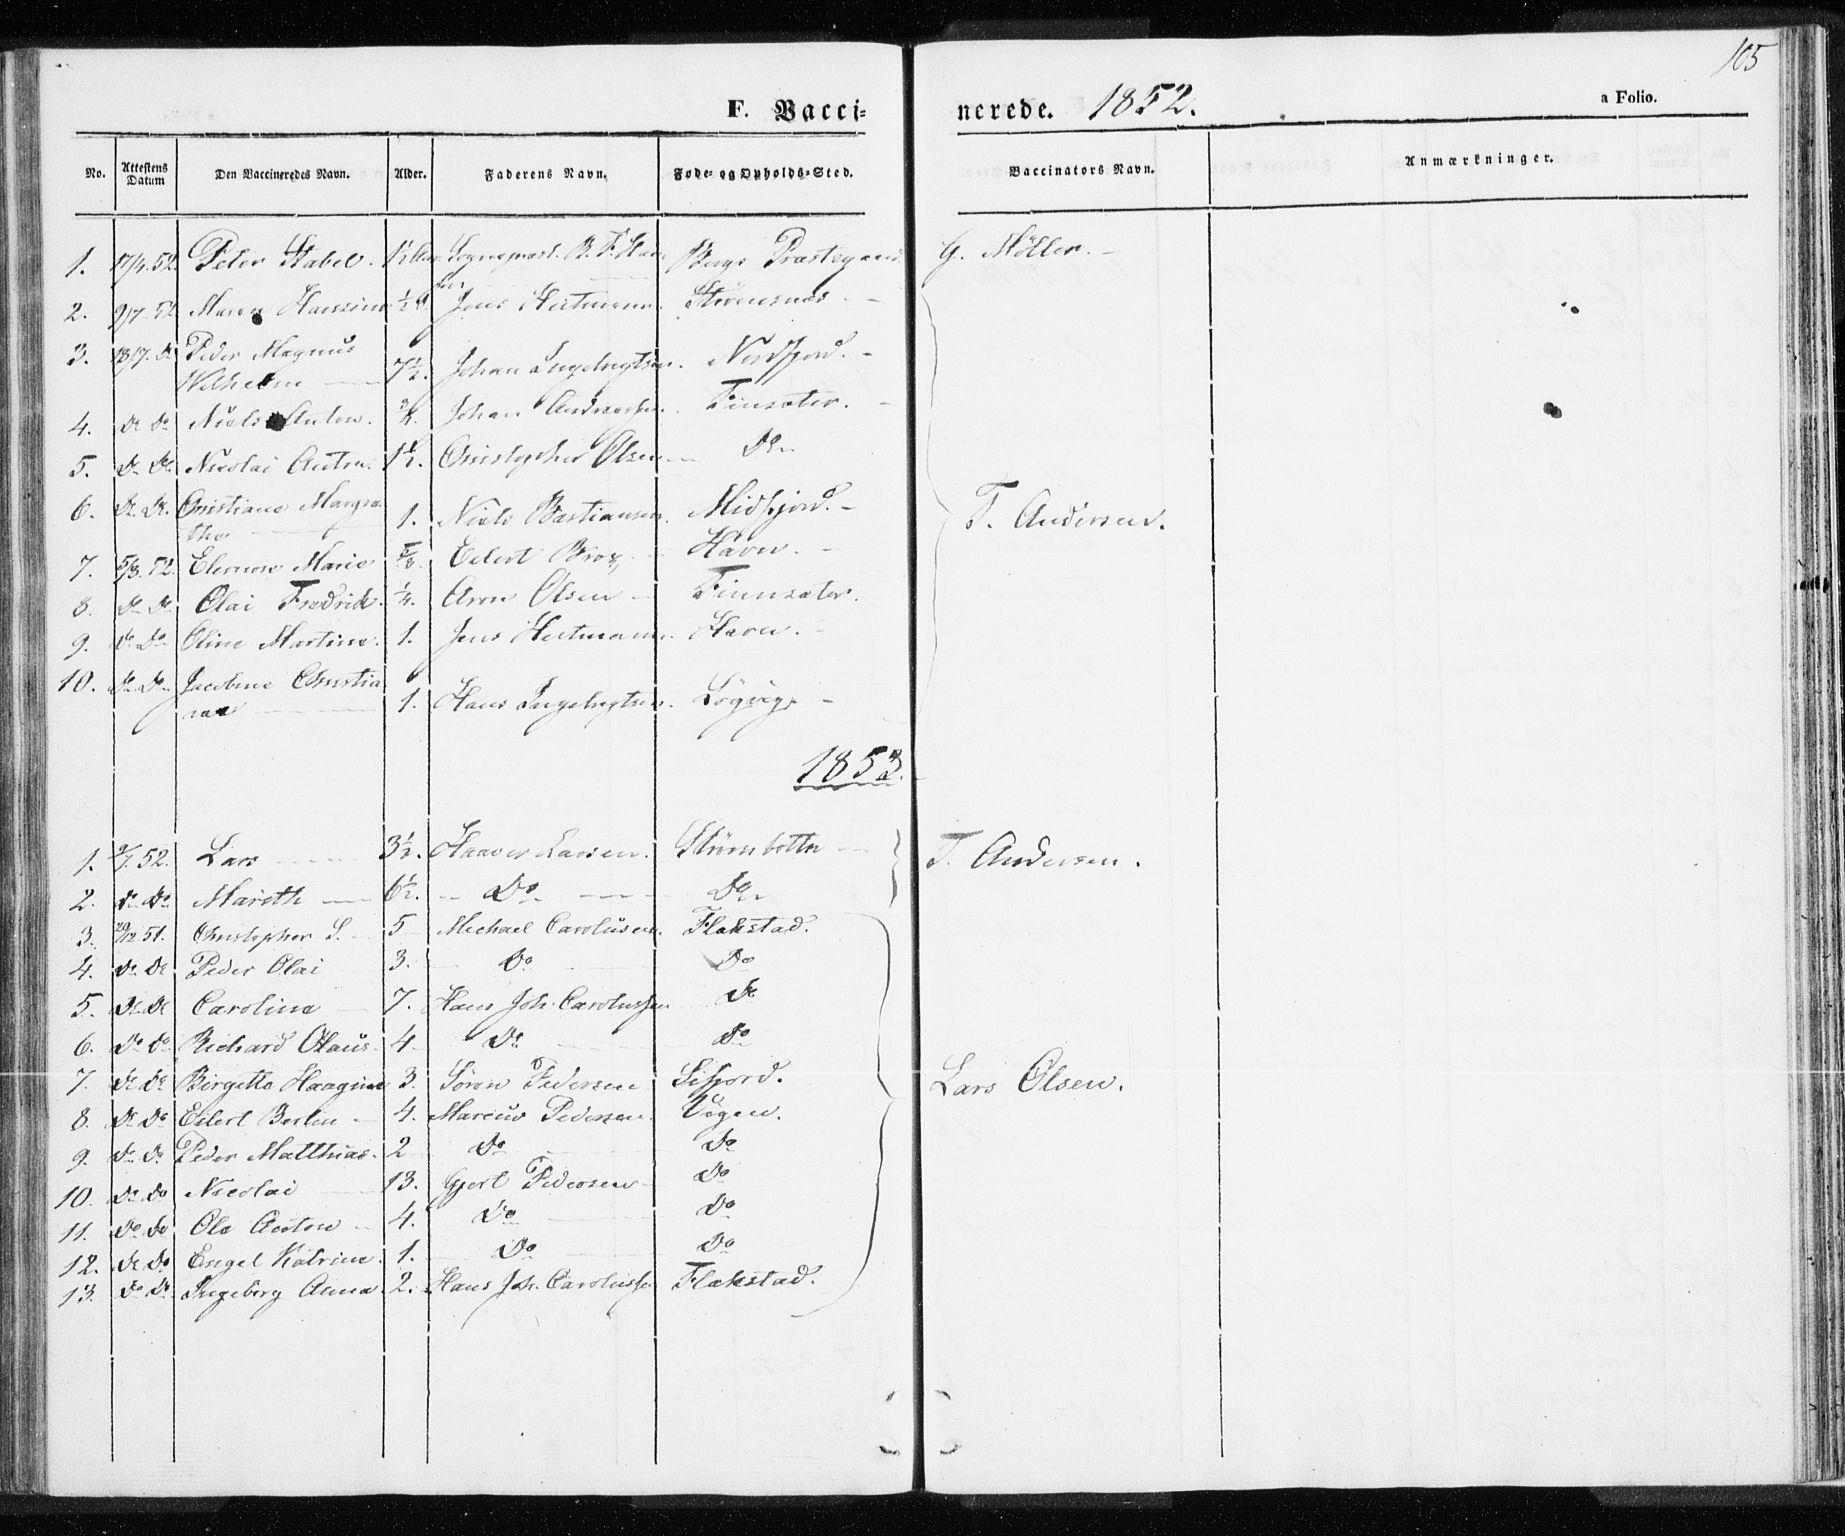 105
F. Vacci- nerede. 1852. a Folio.
No. Attestens Datum Den Vaccineredes Navn. Alder. Faderens Navn. Føde- og Opholds-Sted. Vaccinators Navn. Anmærkninger.
1. 17/4. 52. Peter Stabel. 1½ Sognepræst. B. F. Bergs Præstegaard G. Möller. -
2. 9/7 52 Maren Hansine ½ Jens Hertmann. -
3. 13/7. Do Peder Magnus
Wilhelm 7½. Johan Ingebrigtsen. Nordfjord. -
4. Do Do Niels Anton. ¾. Johan Andreassen. Finsæter. -
5. Do Do Nicolai Anton. 1½. Christopher Olsen Do
6. Do Do. Christiane Margre
the 1. Niels Bastiansen. Midfjord. - T. Andersen.
7. 5/8. 52. Elenore Marie Edert Brox Havn. -
8. Do Do Olai Fredrik. ¼. Aron Olsen Finnsæter.
9. Do Do Oline Martine. 1. Jens Hertmann. Havn. -
10. Do Do Jacobine Christia
naa 1. Hans Ingebrigtsen. -
1853.
1. 9/7. 52. Lars 3½. Haaver Larsen. T. Andersen.
2. Do Do Mareth 6½. Do Do
3. 20/12 51. Christopher S. 5 Michael Carolüsen. Flakstad.
4. Do Do Peder Olai 3. Do Do
5. Do Do Carolina 7. Hans Joh. Carolussen Do
6. Do Do Richard Olaüs 4 Do Do
7. Do Do Birgitte Haagine 3. Søren Pedersen Sifjord. Lars Olsen.
8. Do Do Edert Berlin 4. Marcus Pedersen. Vogen.
9. Do Do Peder Matthias. 2 Do Do
10. Do Do Nicolai 13. Gjert Pedersen Do
11. Do Do Ole Anton 4. Do Do
12. Do Do Engel Katrine. 1. Do Do
13. Do Do Ingeborg Anna. 2. Hans Joh. Caroluss Flakstad.